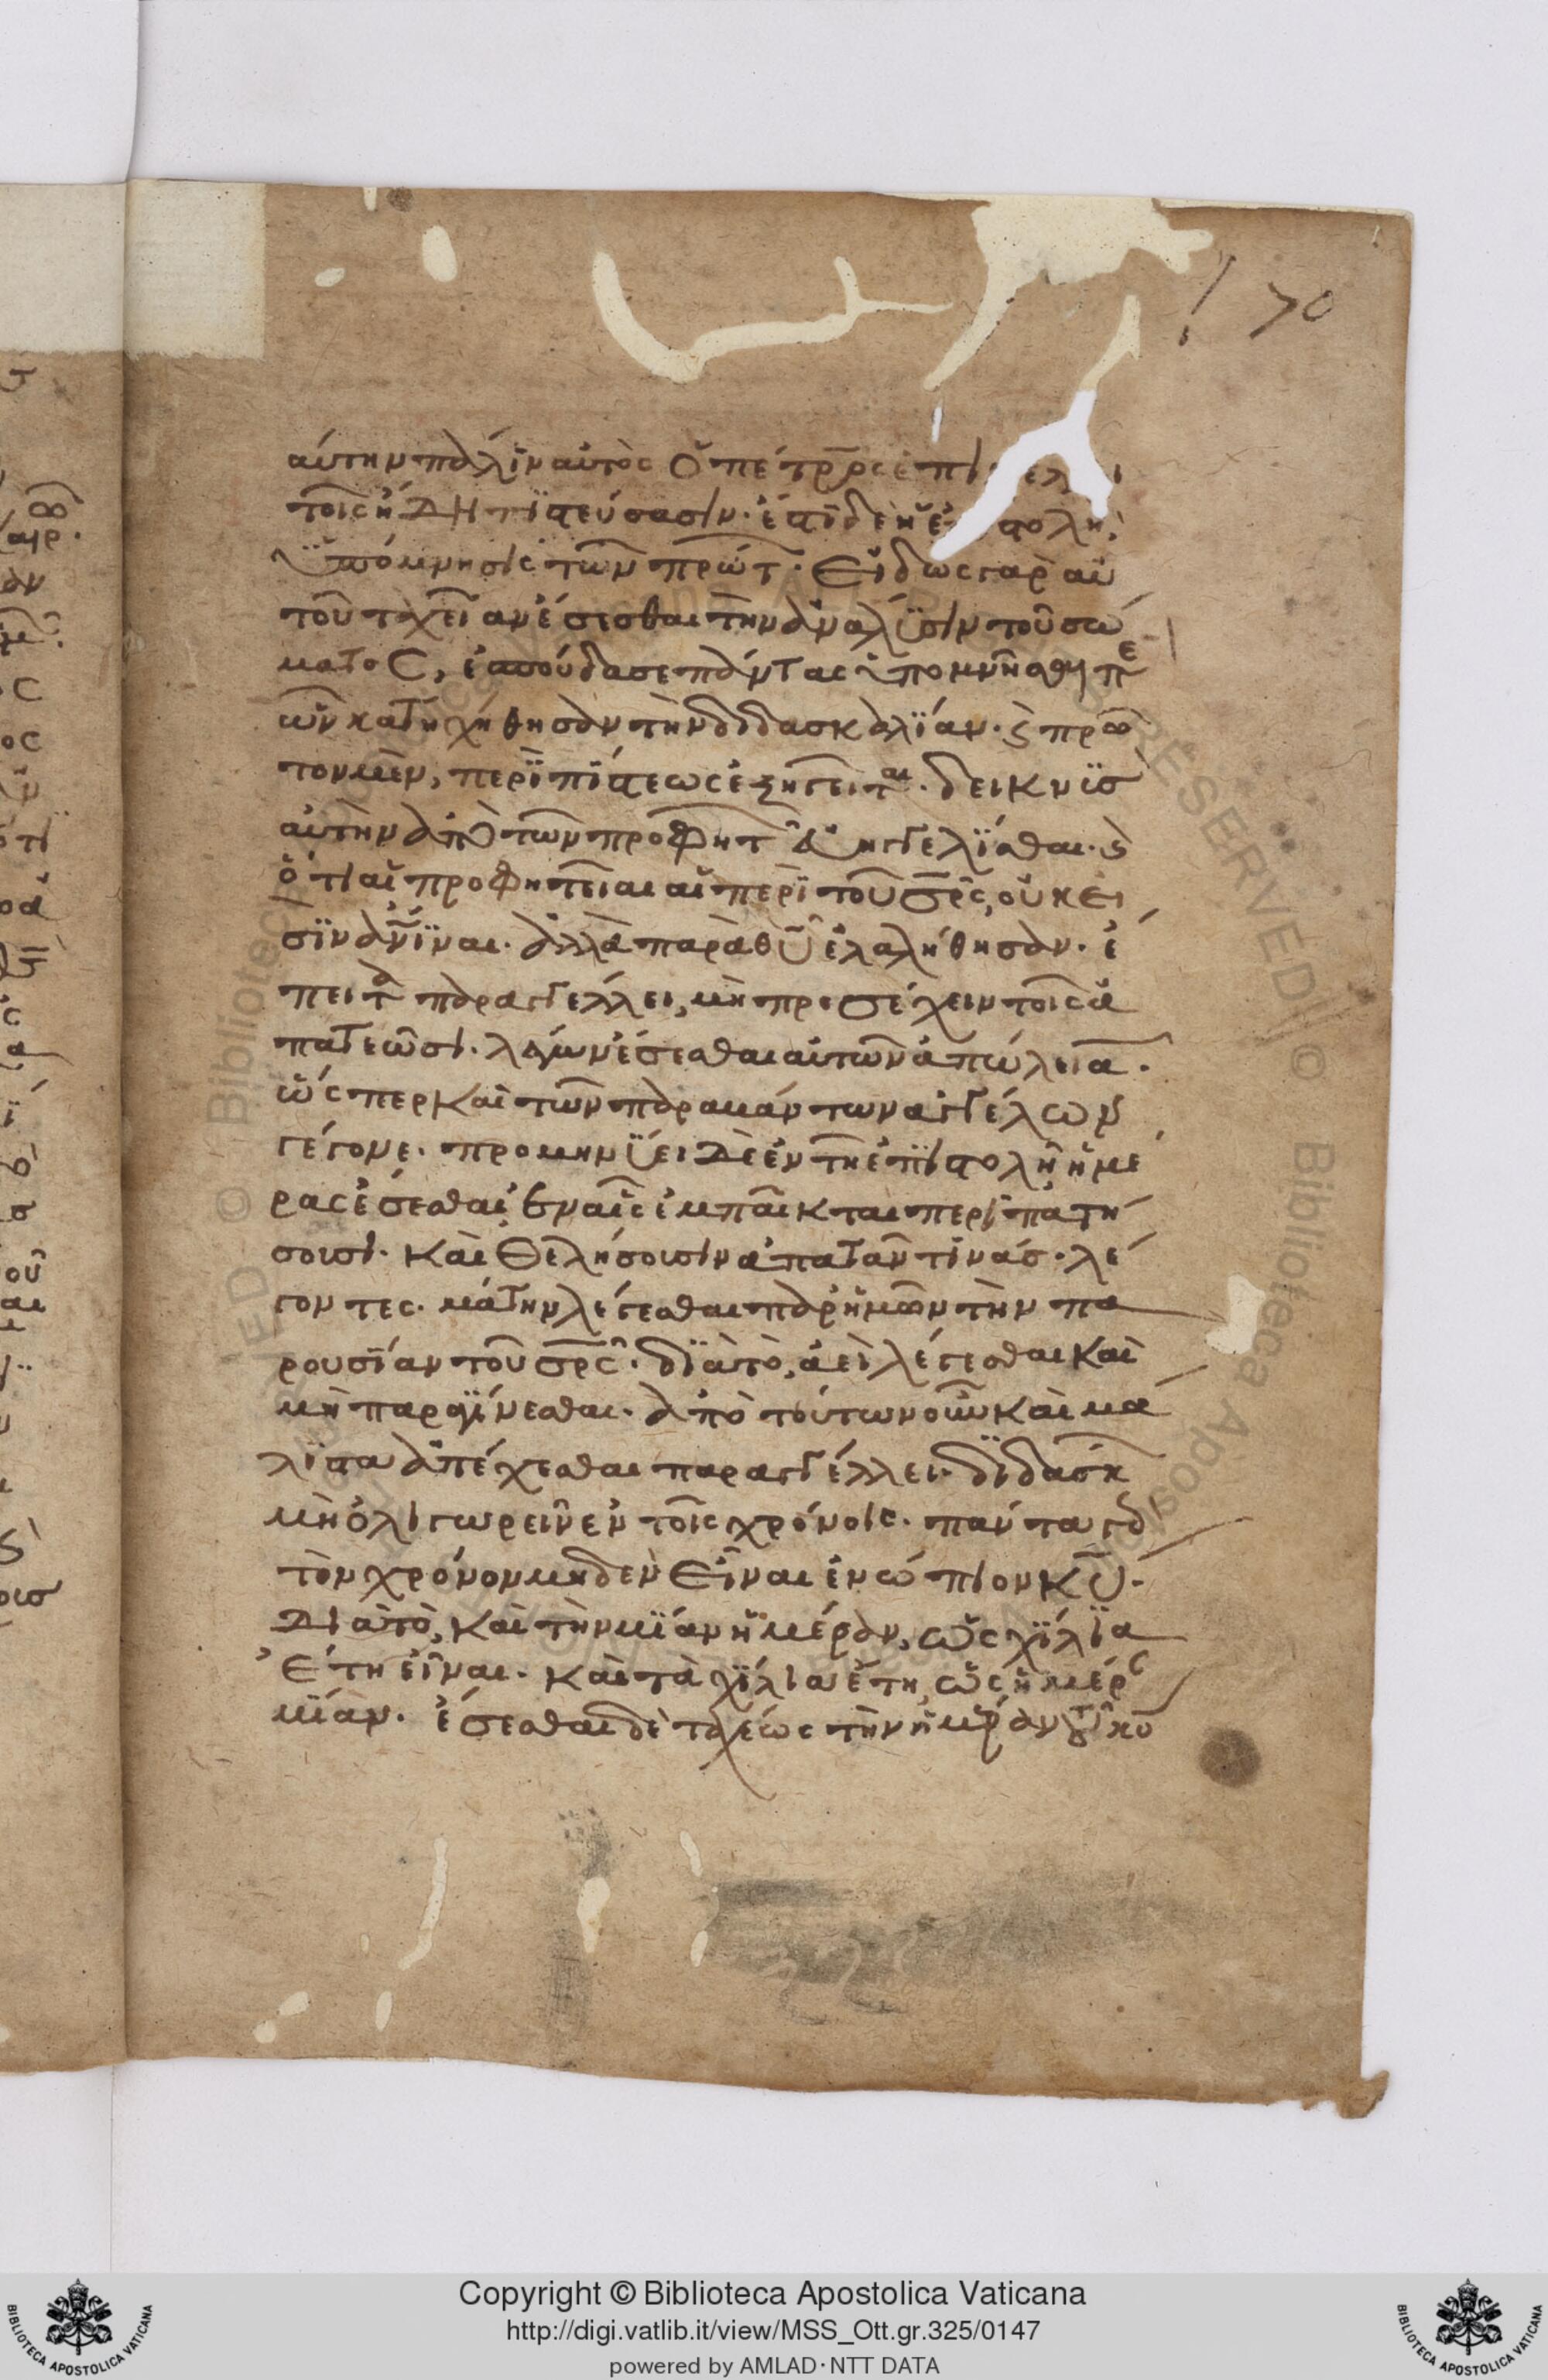 70
αύτην πάλιν αὐτὸς ὁ πέτρος ἐπι
τοῖς ἤδη πϊστεύσασιν· ἔστι δὲ ἡ ἐ στολὴ,
ὑπόμνησις τῶν πρώτ· Εἰδὼς γὰρ αὐ
τοῦ ταχεῖαν ἔσεσθαι τὴν ἀνάλϋσιν τοῦ σώ
ματος, ἐσπούδασε πάντας ὑπομνησθῆ πε
ὧν κατηχήθησαν τὴν διδασκαλΐαν. ϛ πρῶ
τον μὲν, περῒ πίστεως ἐξηγεῖται. δεικνὺς
αὐτὴν ἀπὸ τῶν προφητ εὐηγγελΐσθαι. ϛ
ὅτι αἱ προφητεῖαι αἱ περῒ τοῦ σρς, οὔκ εἰ
σϊν ἀνΐναι. ἀλλὰ παρὰ θυ ἐλαλήθησαν. ἔ
πειτα παραγγέλλει, μὴ προσέχειν τοῖς ἀ
πατεῶσι. λέγων ἔσεσθαι αὐτῶν ἀπώλεια.
ὥς περ καὶ τῶν παραβάντων ἀγγέλων
γέγονε. προμηνΰει δὲ ἐν τῆ ἐπϊστολῆ ἡμέ
ρας ἔσεσθαι, ἐν αἷς ἐμπαῖκται περιπατή
σουσι. καὶ θελήσουσιν ἀπατᾶν τϊνάς. λέ
γοντες. μάτην λέγεσθαι παρ ἡμῶν τὴν πα
ρουσΐαν τοῦ σρς. δϊατὸ, ἀεὶ λέγεσθαι καὶ
μὴ παραγΐνεσθαι. ἀπὸ τούτων οὖν καὶ μά
λϊστα ἀπέχεσθαι παραγγέλλει. διδάσκ
μὴ ὀλιγωρεῖν ἐν τοῖς χρόνοις. πάντα γὰ
τὸν χρόνον μηδὲν εἶναι ἐνώπιον κυ.
διατὸ, καὶ τὴν μΐαν ἡμέραν, ὡς χΐλΐα
ἔτη εἶναι. καὶ τὰ χΐλια ἔτη, ὡς ἡμέρ
μΐαν. ἔσεσθαι δὲ ταχέως τὴν ἡμέραν τοῦ κυ
Copyright © Biblioteca Apostolica Vaticana
http://digi.vatlib.it/view/MSS_Ott.gr.325/0147
powered by AMLAD·NTT DATA
BIBLIOTECA APOSTOLICA VATICANA
BIBLIOTECA APOSTOLICA VATICANA